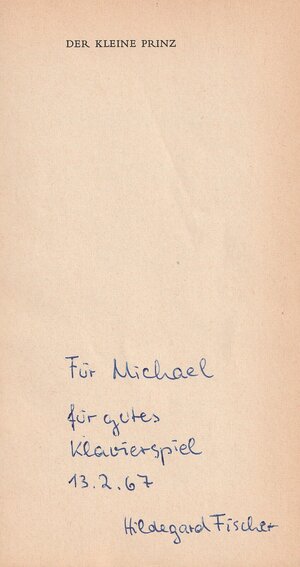 DER KLEINE PRINZ
Für Michael
für gutes
Klavierspiel
13.2.67
Hildegard Fischer